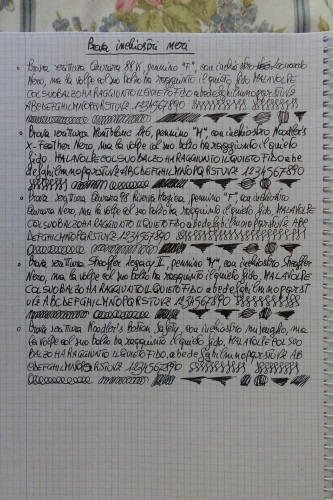 Prova inchiostri neri
Prova scrittura Aurora 88 K, pennino "F", con inchiostro Leonardo
Nero, ma la volpe col suo balzo ha raggiunto il quieto fido MALAVOLPE
COLSUOBALZOHARAGGIUNTOILQUIETOFIDO abcdefghilmnopqrstuvz
ABCDEFGHILMNOPQRSTUVZ 1234567890
Prova scrittura Montblanc 146, pennino "M", con inchiostro Noodler's
X-Feather Nero, ma la volpe col suo balzo ha raggiunto il quieto
fido. MALAVOLPECOLSUOBALZOHARAGGIUNTOILQUIETOFIDO abc
defghilmnopqrstuvz ABCDEFGHILMNOPQRSTUVZ 1234567890
Prova scrittura Aurora 88 Nuova Magica, pennino "F", con inchiostro
Aurora Nero, ma la volpe col suo balzo ha raggiunto il quieto fido, MALAVOLPE
COLSUOBALZOHARAGGIUNTOILQUIETOFIDO abcdefghilmnopqrstuvz ABC
DEFGHILMNOPQRSTUVZ 1234567890
Prova scrittura Sheaffer Legacy II, pennino "M", con inchiostro Sheaffer
Nero, ma la volpe col suo balzo ha raggiunto il quieto fido, MALAVOLPE
COLSUOBALZOHARAGGIUNTOILQUIETOFIDO abcdefghilmnopqrst
uvz ABCDEFGHILMNOPQRSTUVZ 1234567890
Prova scrittura Noodler's Boston Safety, con inchiostro
ma la volpe col suo balzo ha raggiunto il quieto fido, MALAVOLPECOLSUO
BALZOHARAGGIUNTOILQUIETOFIDO, abcdefghilmnopqrstuvz AB
CDEFGHILMNOPQRSTUVZ 1234567890